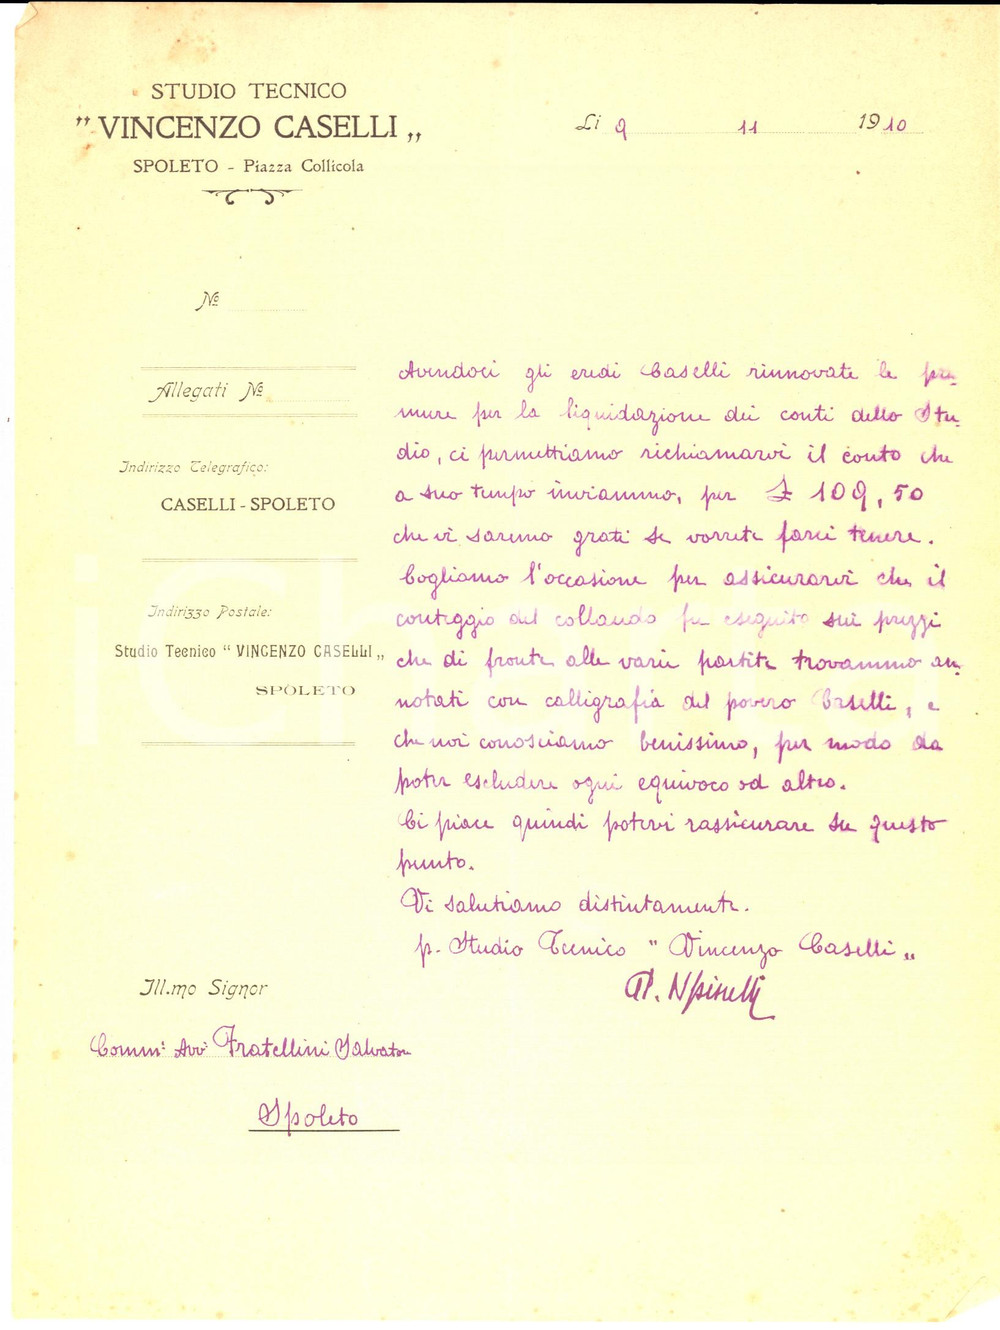 STUDIO TECNICO
" VINCENZO CASELLI „
SPOLETO - Piazza Collicola
Li 9 11 1910
No
Allegati No
Indirizzo Telegrafico:
CASELLI - SPOLETO
Indirizzo Postale:
Studio Tecnico " VINCENZO CASELLI „
SPOLETO
Avendoci gli eredi Caselli rinnovate le pre-
mure per la liquidazione dei conti dello Stu-
dio, ci permettiamo richiamarvi il conto che
a suo tempo inviammo, per £ 109,50
che vi saremo grati se vorrete farci tenere.
Cogliamo l'occasione per assicurarvi che il
conteggio del collaudo fu eseguito sui prezzi
che di fronte alle varie partite trovammo an-
notati con calligrafia del povero Caselli, e
che noi conosciamo benissimo, per modo da
poter escludere ogni equivoco od altro.
Ci piace quindi potervi rassicurare su questo
punto.
Vi salutiamo distintamente.
p. Studio Tecnico " Vincenzo Caselli „
Ill.mo Signor
Comm. Avv. Fratellini Salvatore
Spoleto